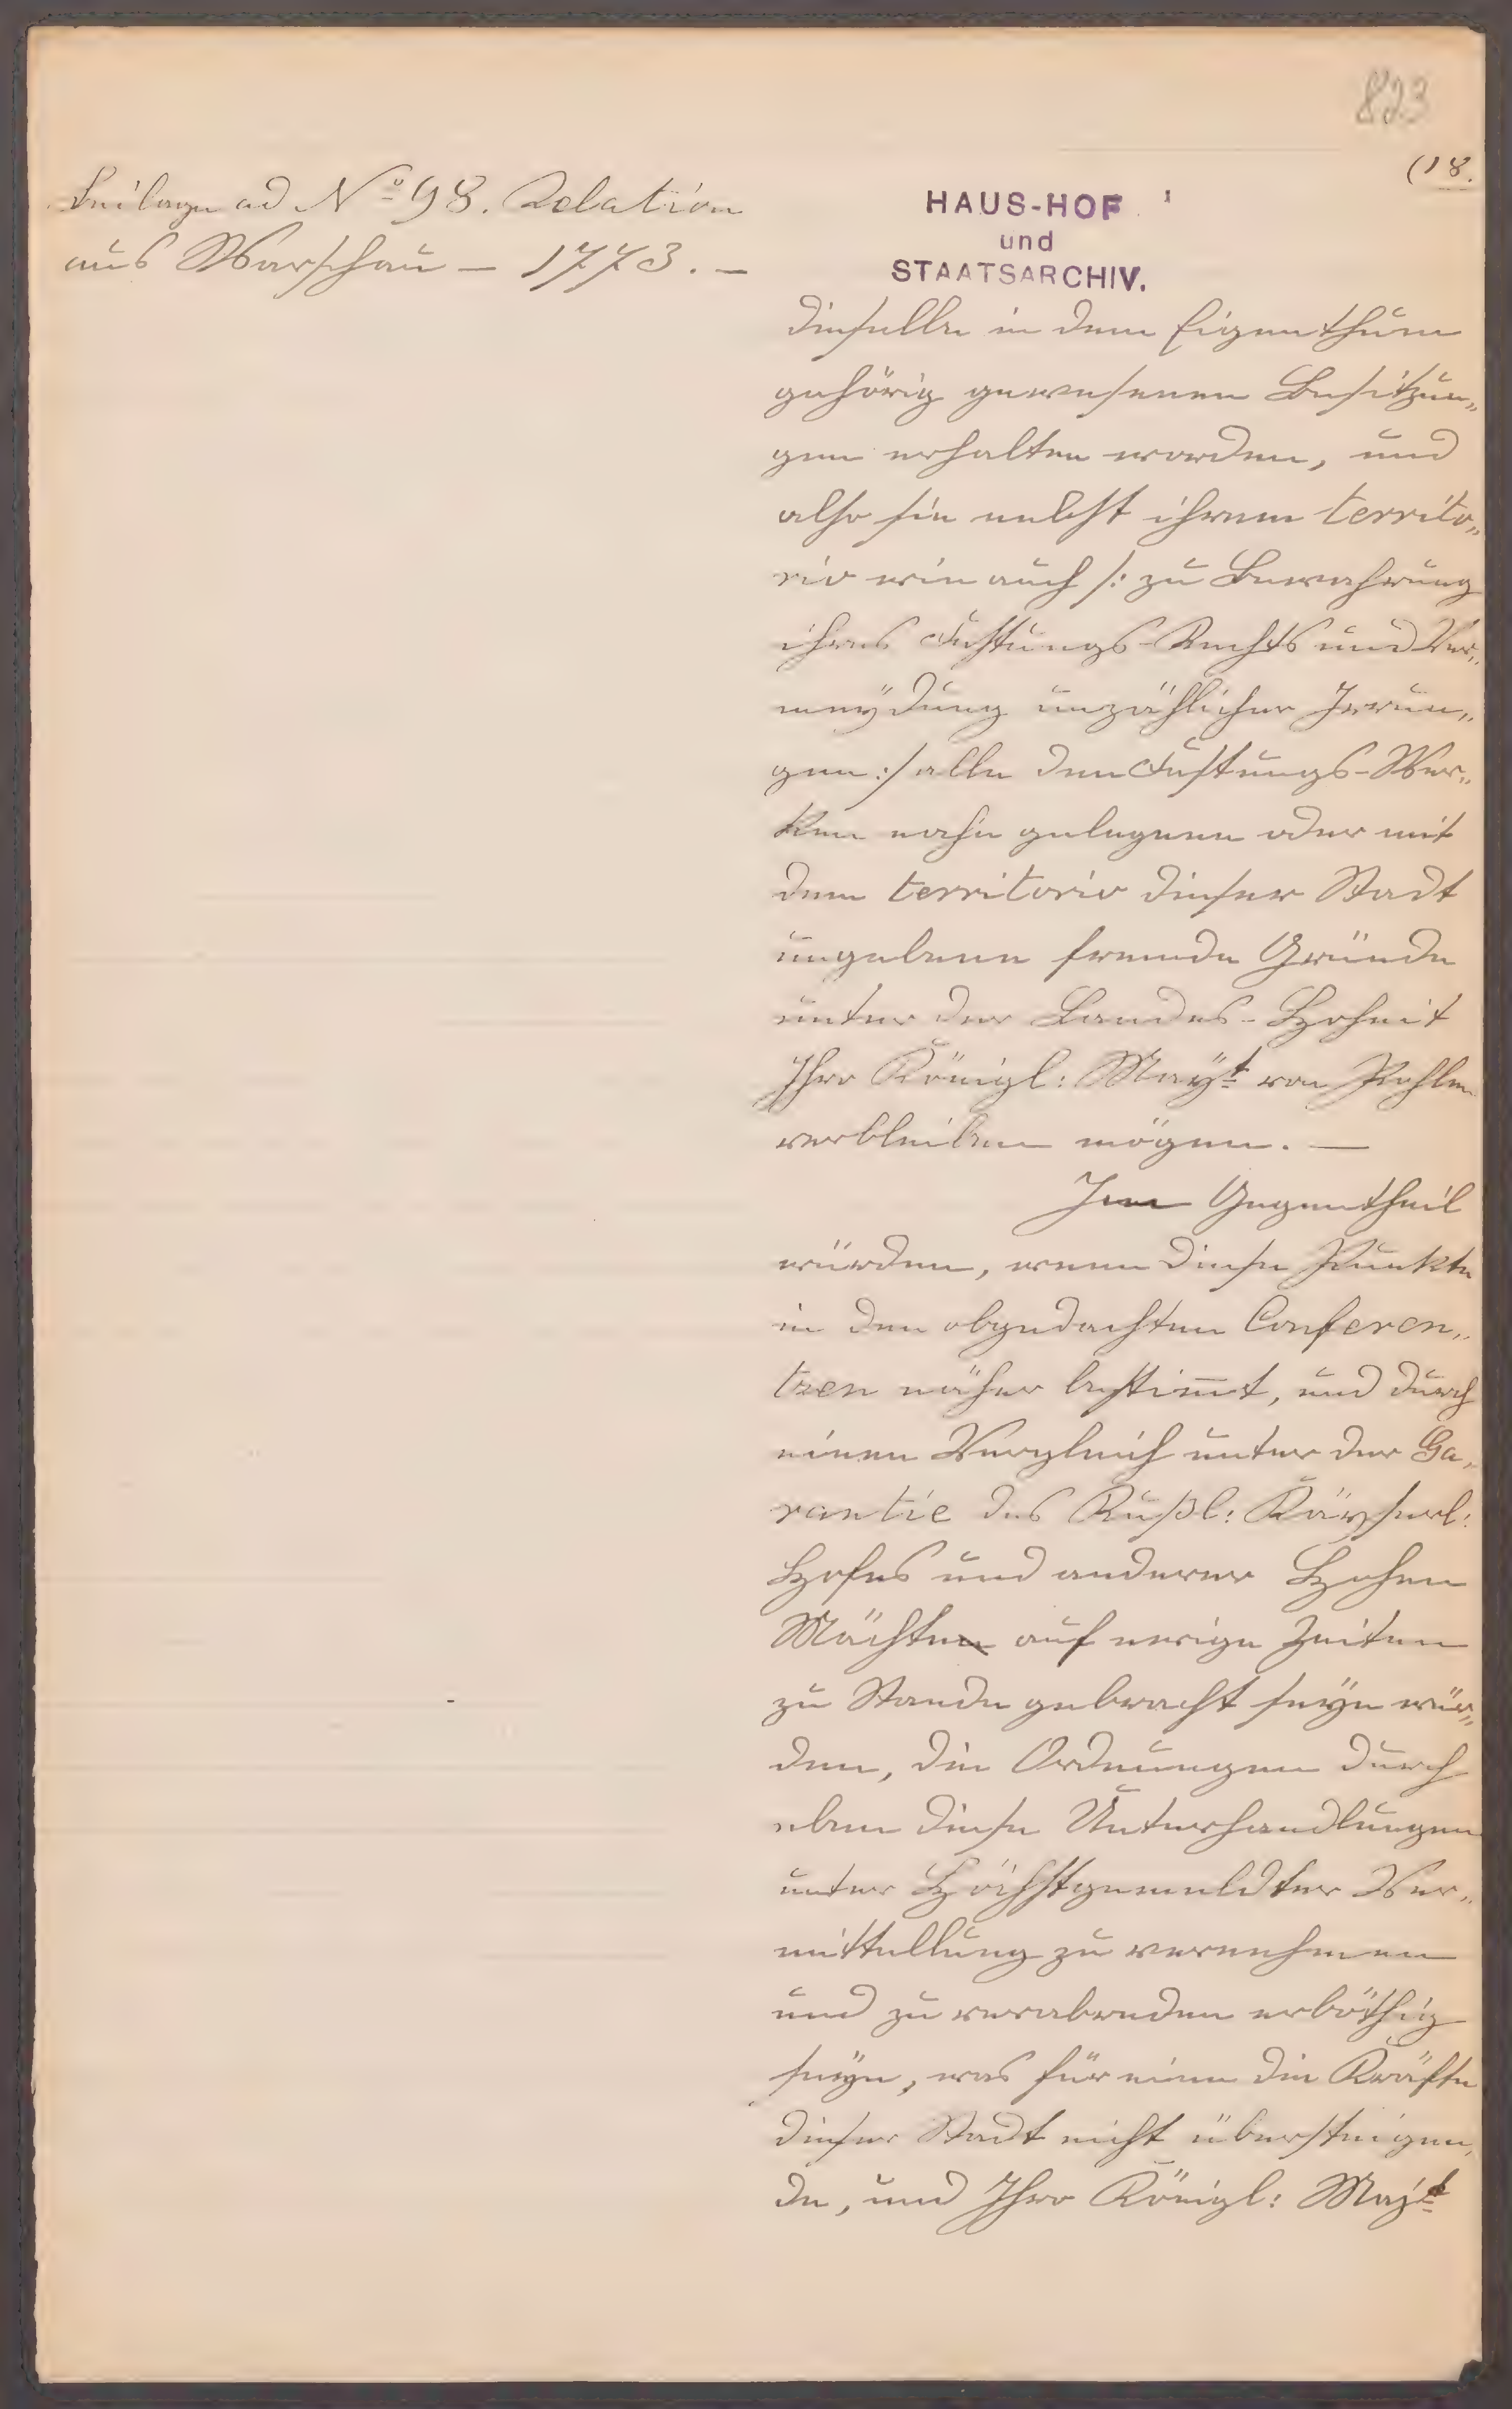 823
(18.
Beilage ad Nº 98. Relation
aus Warschau – 1773. –
HAUS-HOF
und
STAATSARCHIV.
dieselbe in dem Eigenthum
gehörig gewesenen Besitzun„
gen erhalten worden, und
also sie nebst ihrem territo„
rio wie auch /: zu Bewahrung
ihres Festungs-Rechts und Ver„
meÿdung unzählicher Irrun„
gen :/ alle den Festungs-Wer„
ken nahe gelegene oder mit
dem territorio dieser Stadt
umgebene fremde Gründe
unter der Landes-Hoheit
Ihro Königl: Maÿt von Pohlen
verbleiben mögen. —
Im Gegentheil
würden, wenn diese Punkte
in den obgedachten Conferen„
tzen näher bestim̄t, und durch
einen Vergleich unter der Ga„
rantie des Rußl: Käyserl:
Hofes und anderer Hohen
Mächten auf ewige Zeiten
zu Stande gebracht seyn wür„
den, die Ordnungen durch
eben diese Unterhandlungen
unter Höchstgemeldter Ver„
mittellung zu vernehmen
und zu verabreden erböthig
seyn, was für eine die Kräfte
dieser Stadt nicht übersteigen„
de, und Ihro Königl: Majt